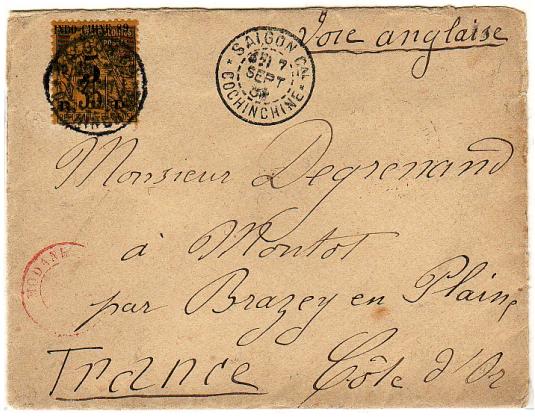 INDO-CHINE 89
5
35
Voie anglaise
SAIGON CN
7
SEPT
COCHINCHINE
Monsieur Degrenand
à Montot
MODANE
par Brazey en Plaine
France Côte d'Or